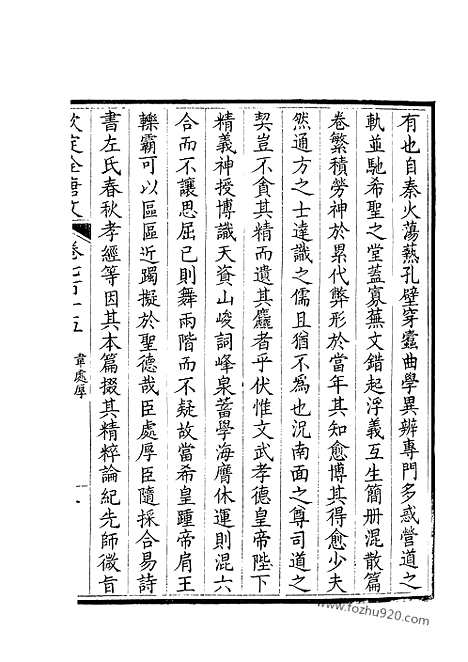 有也自秦火蕩爇孔壁穿蠹曲學異辨專門多惑營道之
軌並馳希聖之堂蓋寡蕪文錯起浮義互生簡冊混散篇
卷繁積勞神於累代弊形於當年其知愈博其得愈少夫
然通方之士達識之儒且猶不為也況南面之尊司道之
契豈不貪其精而遺其麤者乎伏惟文武孝德皇帝陛下
精義神授博識天資山峻詞峰泉蓄學海膺休運則混六
合而不讓思屈已則舞兩階而不疑故當希皇踵帝肩王
轢霸可以區區近躅擬於聖德哉臣處厚臣隨採合易詩
書左氏春秋孝經等因其本篇掇其精粹論紀先師微旨
欽定全唐文
卷七百十五
韋處厚
www.fozhu920.com